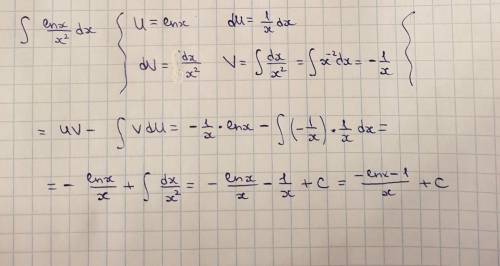 ∫ lnx/x² dx { U = lnx dU = 1/x dx
dV = dx/x² V = ∫ dx/x² = ∫ x⁻² dx = -1/x {
= UV - ∫ V dU = -1/x · lnx - ∫ (-1/x) · 1/x dx =
= - lnx/x + ∫ dx/x² = - lnx/x - 1/x + C = (-lnx - 1)/x + C